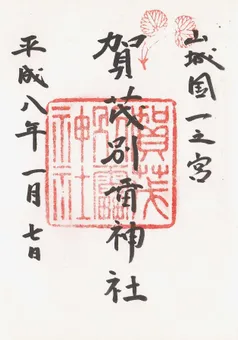 山城国一之宮
賀茂別雷神社
平成八年一月七日
賀茂別雷神社